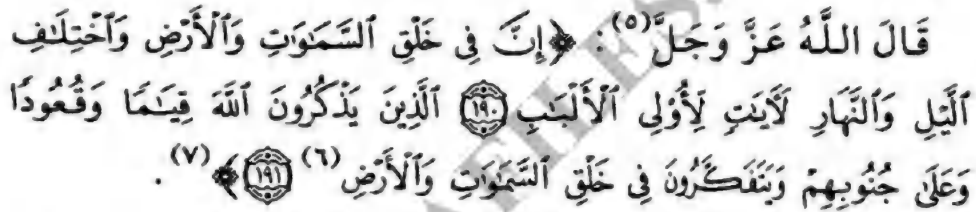 قَالَ اللَّهُ عَزَّ وَجَلَّ(٥): ﴿إِنَّ فِى خَلْقِ ٱلسَّمَٰوَٰتِ وَٱلْأَرْضِ وَٱخْتِلَٰفِ
ٱلَّيْلِ وَٱلنَّهَارِ لَءَايَٰتٍ لِّأُو۟لِى ٱلْأَلْبَٰبِ ۝١٩٠ ٱلَّذِينَ يَذْكُرُونَ ٱللَّهَ قِيَٰمًا وَقُعُودًا
وَعَلَىٰ جُنُوبِهِمْ وَيَتَفَكَّرُونَ فِى خَلْقِ ٱلسَّمَٰوَٰتِ وَٱلْأَرْضِ(٦) ۝١٩١﴾(٧).